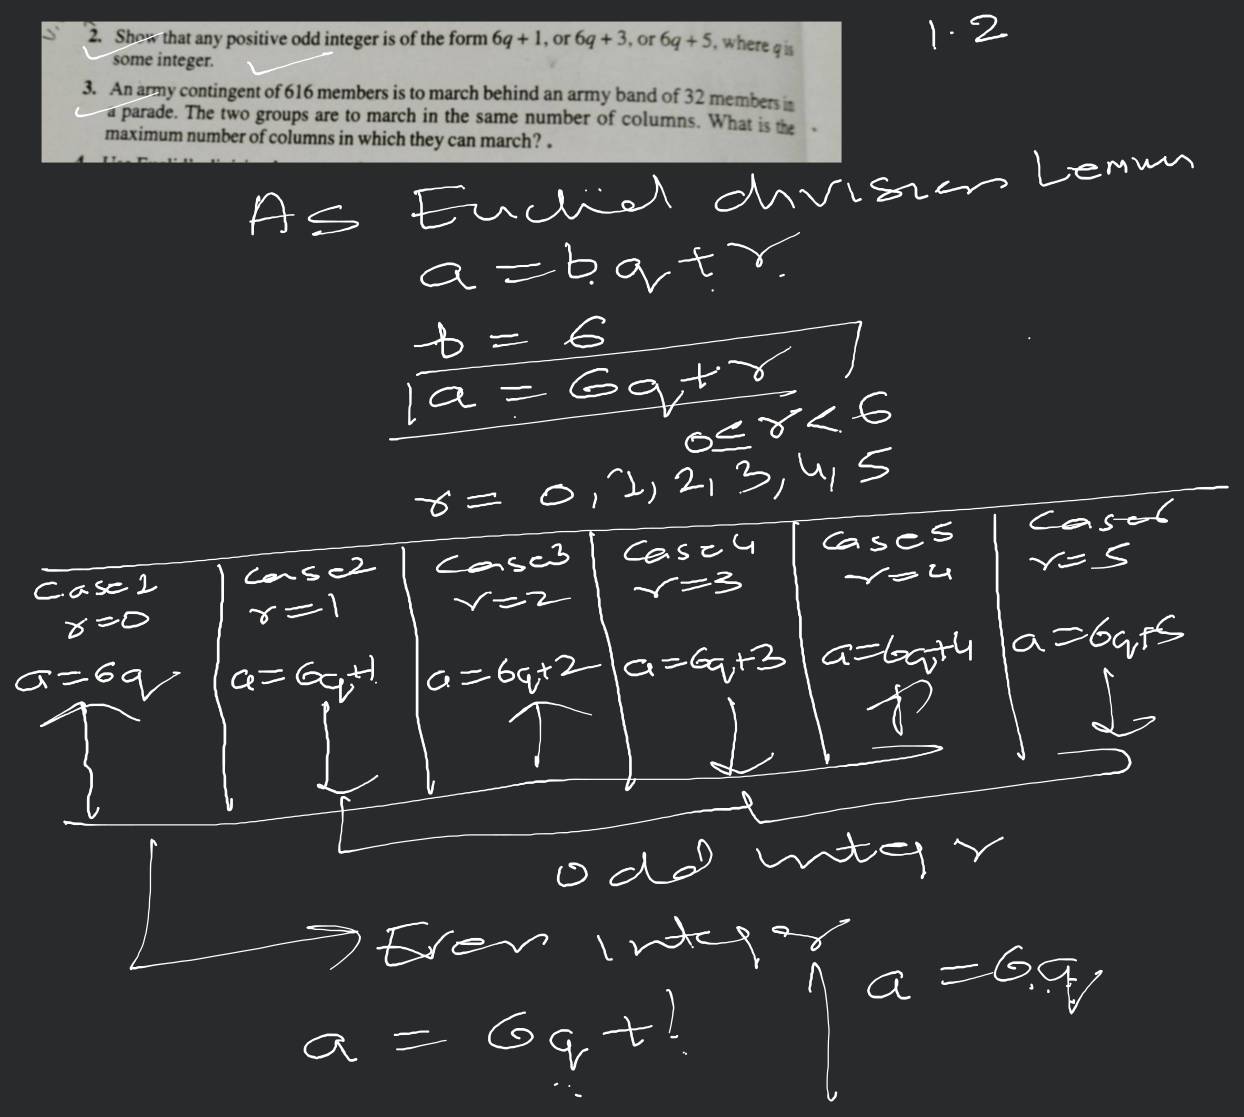 1.2
2. Show that any positive odd integer is of the form 6q + 1, or 6q + 3, or 6q + 5, where q is
some integer.
3. An army contingent of 616 members is to march behind an army band of 32 members in
a parade. The two groups are to march in the same number of columns. What is the
maximum number of columns in which they can march?
As Euclid division Lemma
a = bq + r
b = 6
a = 6q + r
0 ≤ r < 6
r = 0, 1, 2, 3, 4, 5
Case 1 Case 2 Case 3 Case 4 Case 5 Case 6
r=0 r=1 r=2 r=3 r=4 r=5
a=6q a=6q+1 a=6q+2 a=6q+3 a=6q+4 a=6q+5
odd integr
Even integer
a = 6q + 1 a = 6q